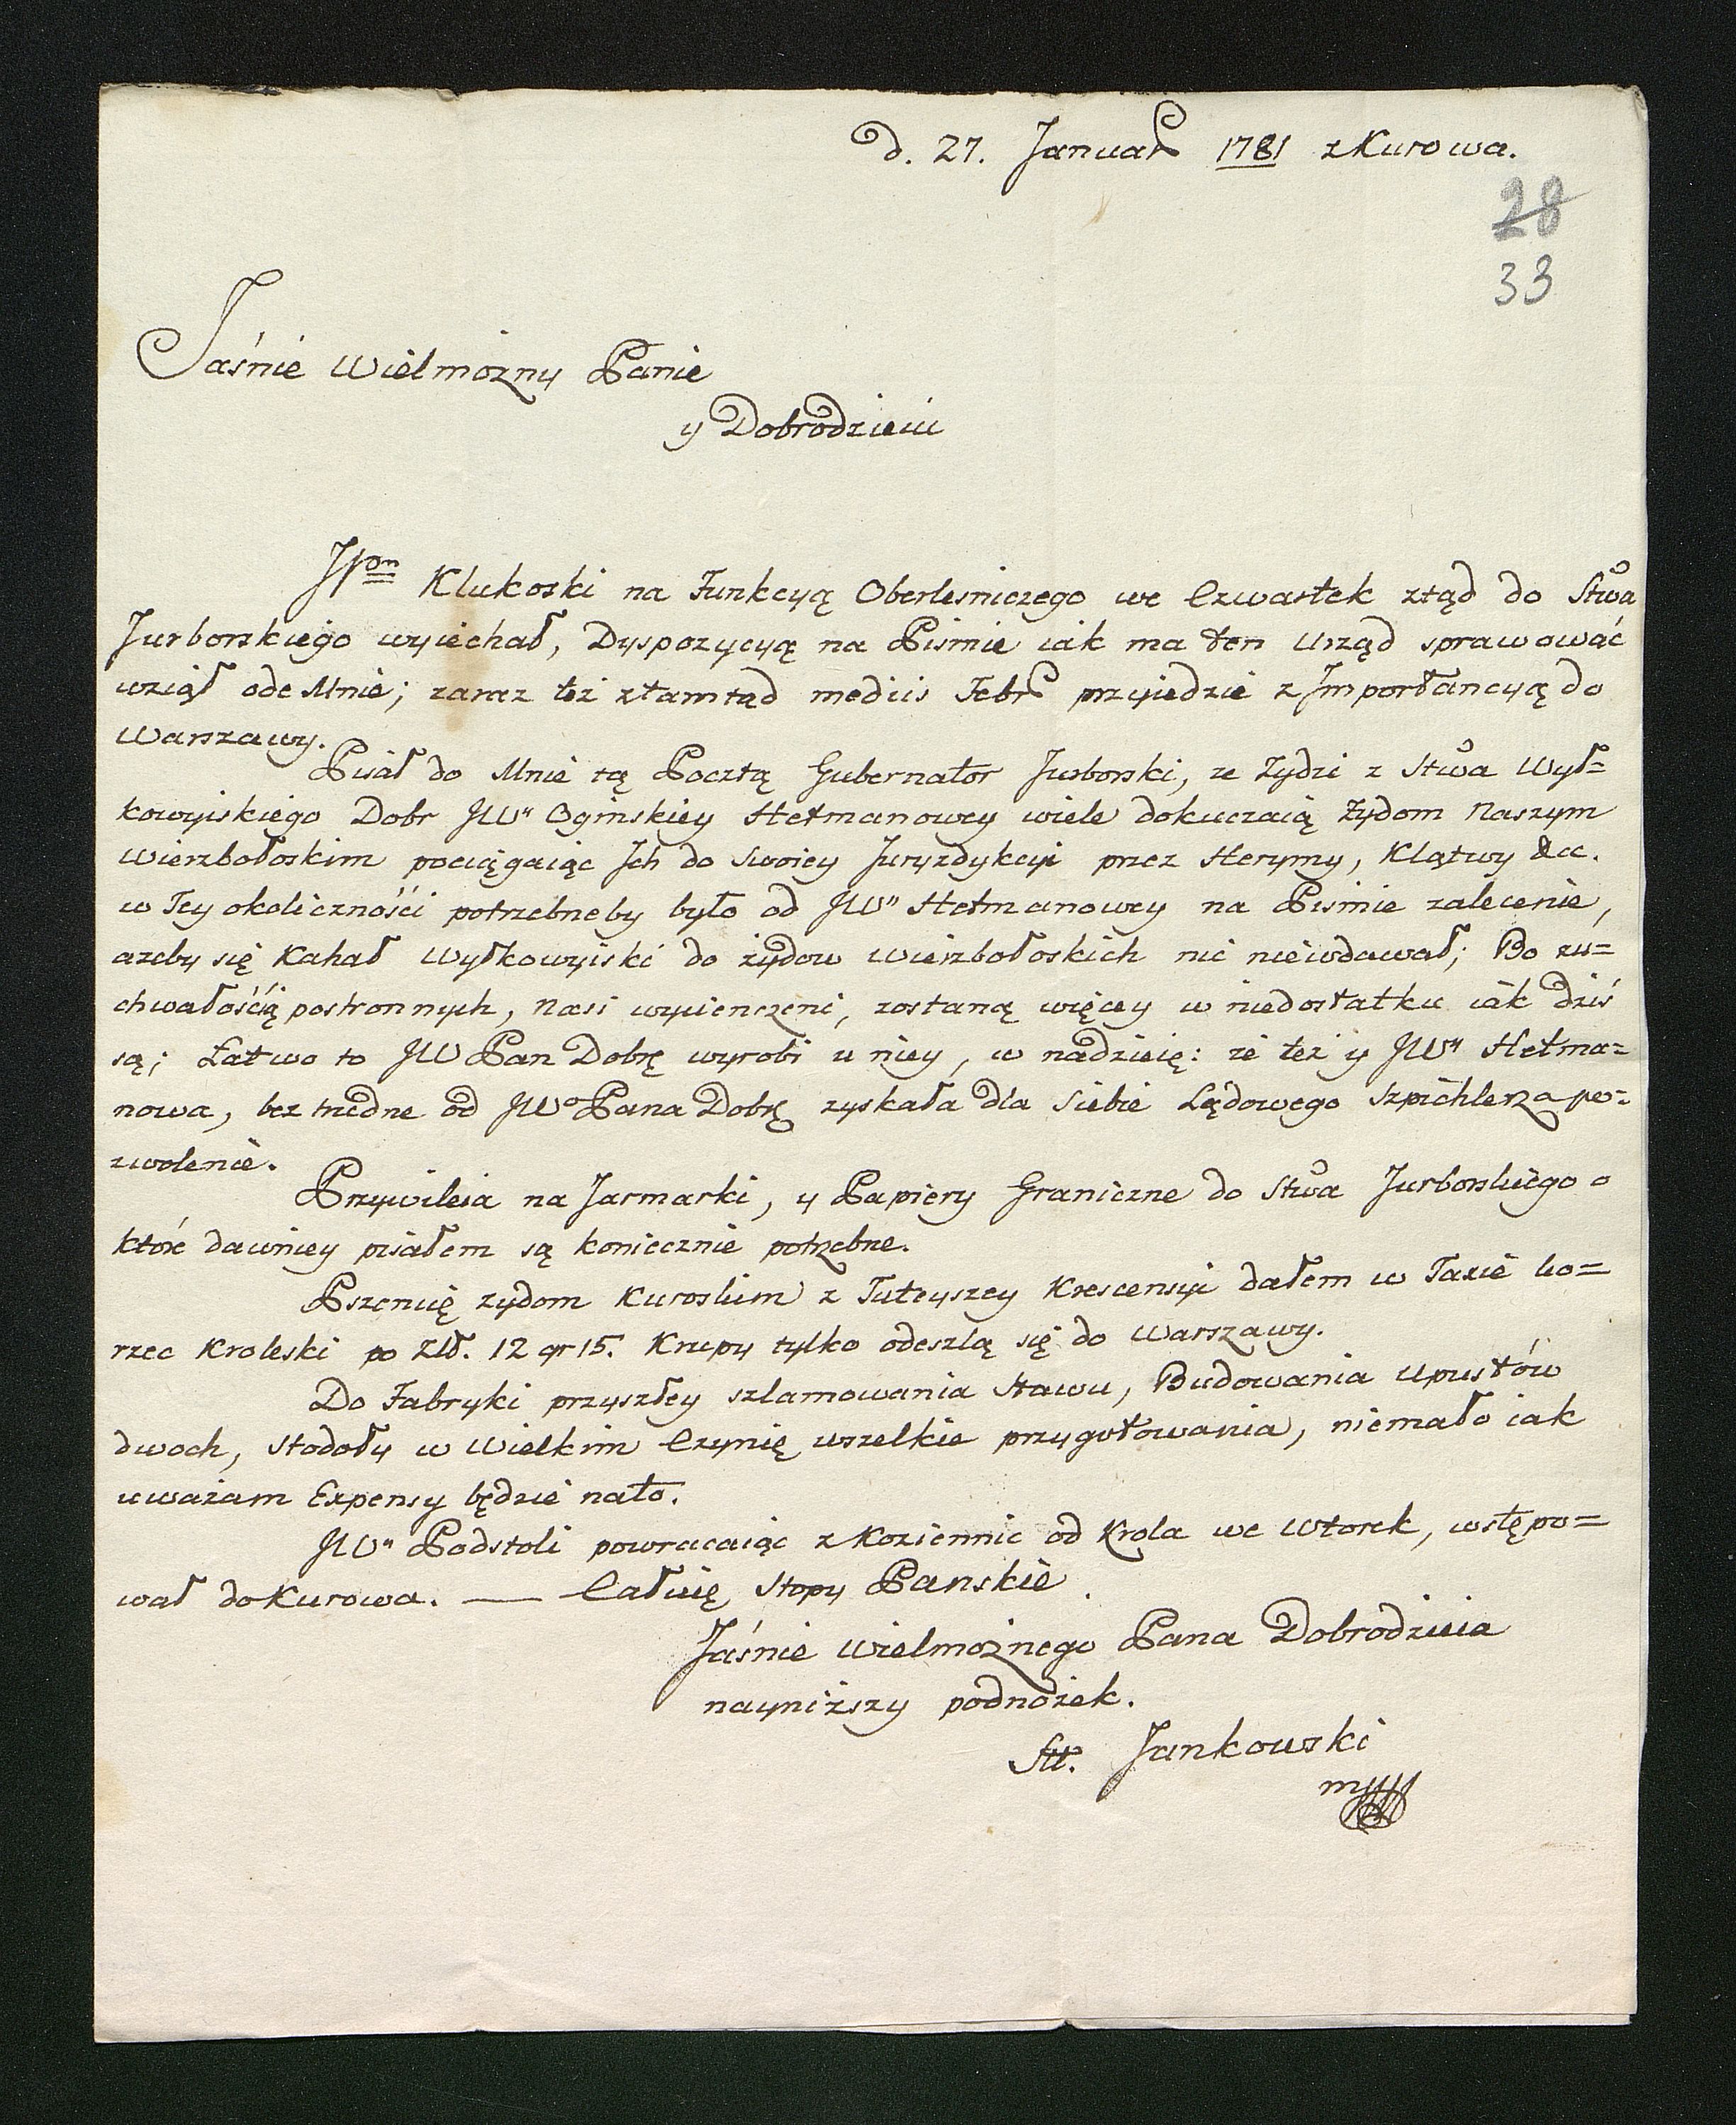 d. 27. Januar 1781 z Kurowa.
28
33
Jaśnie Wielmożny Panie
y Dobrodzieiu
JPan Klukoski na Funkcyą Oberlesniczego we Czwartek ztąd do Stwa
Jurborskiego wyiechał, Dyspozycyą na Piśmie iak ma ten Urząd sprawować
wziął ode Mnie; zaraz też ztamtąd mediis Febr przyiedzie z Importancyą do
Warszawy.
Pisał do Mnie tą Pocztą Gubernator Jurborski, że Żydzi z Stwa Wył=
kowyiskiego Dobr JW Oginskiey Hetmanowey wiele dokuczaią Żydom Naszym
Wierzbołoskim pociągaiąc Jch do Swoiey Juryzdykcyi przez Herymy, Klątwy &cc.
w Tey okoliczności potrzebneby było od JW Hetmanowey na Piśmie zalecenie,
azeby się Kahał Wyłkowyiski do żydow Wierzbołoskich nic niewdawał; Bo zu=
chwałością postronnych, Nasi wycienczeni, zostaną więcey w niedostatku iak dziś
są; Łatwo to JW Pan Dobr wyrobi u niey, w nadzieię: że też y JW Hetma=
nowa, beztrudne od JWo Pana Dobr zyskała dla Siebie Lądowego Szpichlerza po=
zwolenie.
Przywileia na Jarmarki, y Papiery Graniczne do Stwa Jurborskiego o
które dawniey pisałem są koniecznie potrzebne.
Pszenię żydom Kuroskim z Tuteyszey Krescensyi dałem w Taxie ko=
rzec Kroleski po Zlł. 12 gr 15. Krupy tylko odeszlą się do Warszawy.
Do Fabryki przyszłey szlamowania Stawu, Budowania Upustów
dwoch, Stodoły w Wielkim Czynię wszelkie przygotowania, niemało iak
uważam Expensy będzie nato.
JW Podstoli powracaiąc z Koziennic od Krola we Wtorek, wstępo=
wał do Kurowa. — Całuię Stopy Panskie
Jaśnie Wielmożnego Pana Dobrodzieia
nayniższy podnóżek.
St. Jankowski
mp